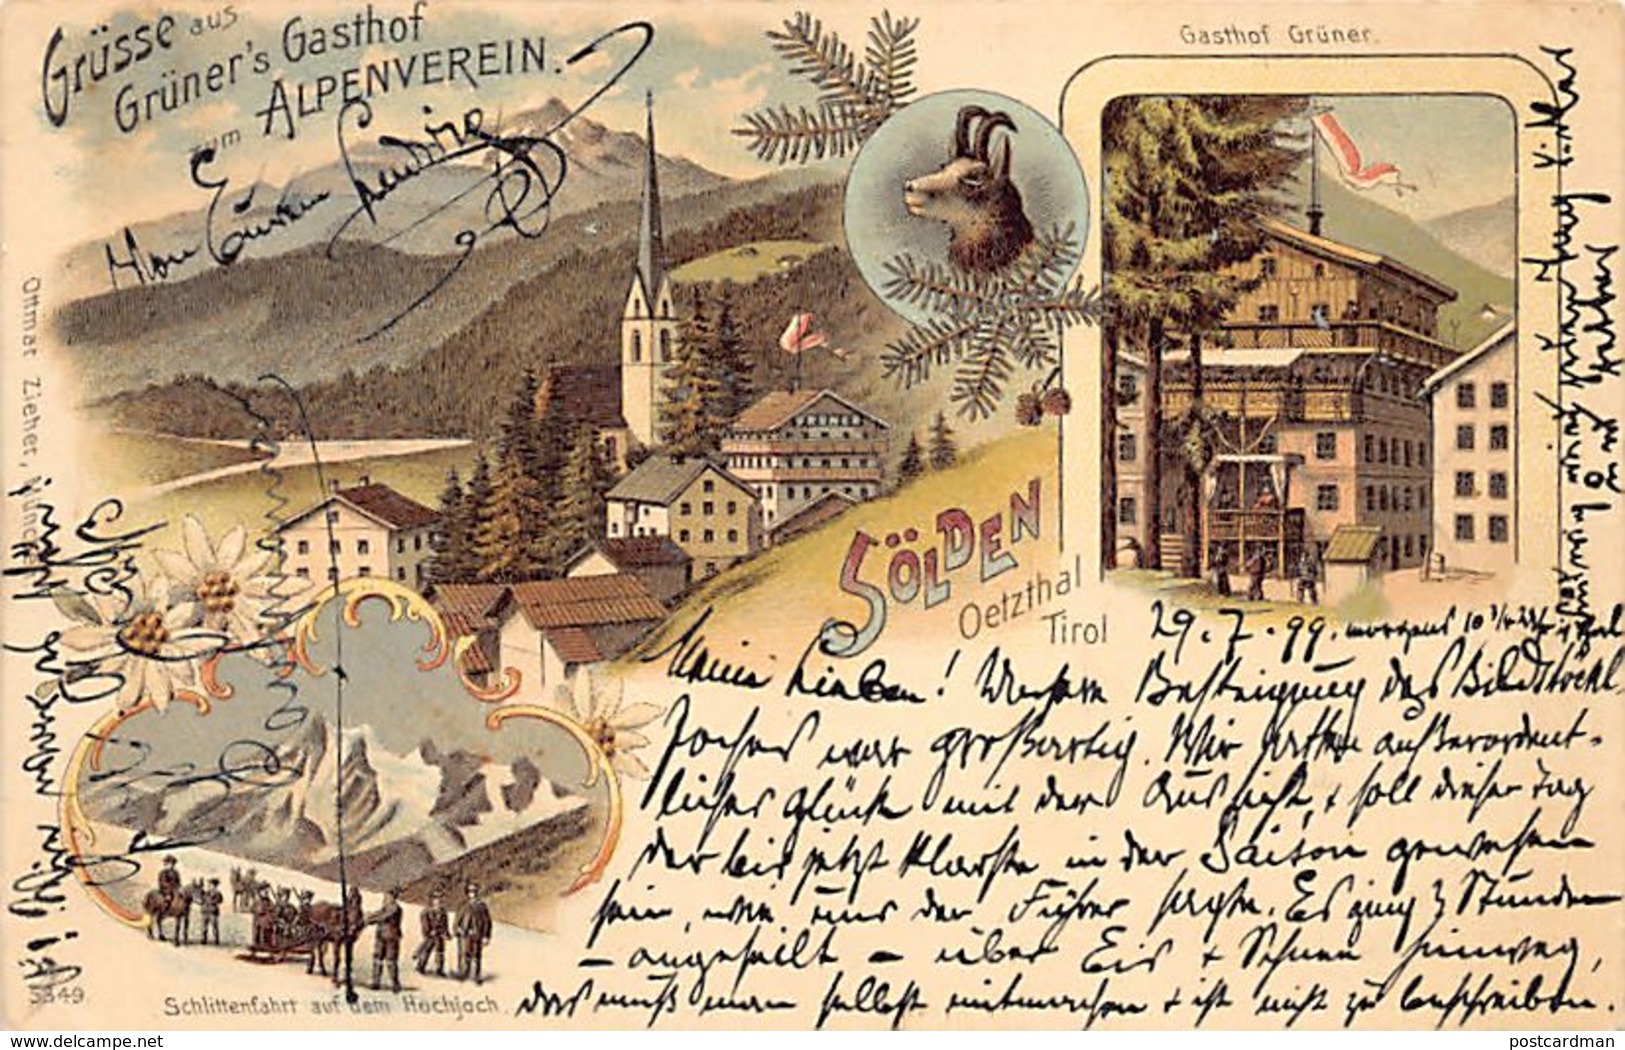 Grüsse aus
Grüner's Gasthof
zum ALPENVEREIN.
Gasthof Grüner.
GRÜNER
SÖLDEN
Oetzthal
Tirol
Ottmar Zieher, München
Schlittenfahrt auf dem Hochjoch.
3349
29.7.99. morgens
Meine Lieben! Unsere Besteigung des Bildstöckl
Joches war großartig. Wir hatten außerordent-
liches Glück mit der Aussicht, + soll dieser Tag
der bis jetzt klarste in der Saison gewesen
sein, wie uns der Führer sagte. Es ging 3 Stunden
- angeseilt - über Eis + Schnee hinweg,
das muß man selbst mitmachen + ist nicht zu beschreiben.
Von Eurem
www.delcampe.net
postcardman